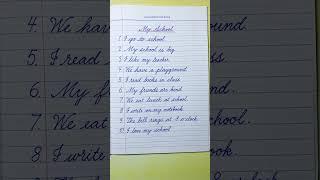 My School
1. I go to school.
2. My school is big.
3. I like my teacher.
4. We have a playground.
5. I read books in class.
6. My friends are kind.
7. We eat lunch at school.
8. I write in my notebook.
9. The bell rings at 8 o'clock.
10. I love my school.